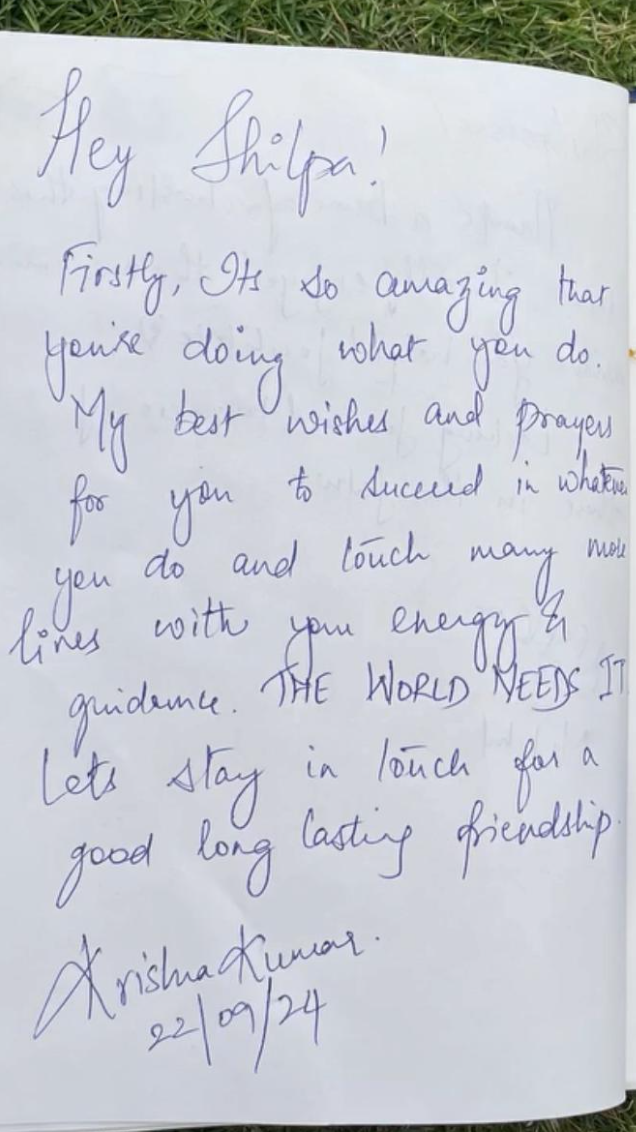 Hey Shilpa!
Firstly, Its so amazing that
you're doing what you do.
My best wishes and prayers
for you to succeed in whatever
you do and touch many more
lives with your energy &
guidance. THE WORLD NEEDS IT
Lets stay in touch for a
good long lasting friendship.
Krishna Kumar.
22/09/24